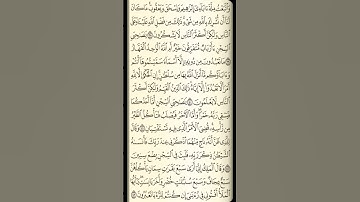 وَٱتَّبَعۡتُ مِلَّةَ ءَابَآءِيٓ إِبۡرَٰهِيمَ وَإِسۡحَٰقَ وَيَعۡقُوبَۚ مَا كَانَ
لَنَآ أَن نُّشۡرِكَ بِٱللَّهِ مِن شَيۡءٖۚ ذَٰلِكَ مِن فَضۡلِ ٱللَّهِ عَلَيۡنَا وَعَلَى
ٱلنَّاسِ وَلَٰكِنَّ أَكۡثَرَ ٱلنَّاسِ لَا يَشۡكُرُونَ ٣٨ يَٰصَٰحِبَيِ
ٱلسِّجۡنِ ءَأَرۡبَابٞ مُّتَفَرِّقُونَ خَيۡرٌ أَمِ ٱللَّهُ ٱلۡوَٰحِدُ ٱلۡقَهَّارُ
٣٩ مَا تَعۡبُدُونَ مِن دُونِهِۦٓ إِلَّآ أَسۡمَآءٗ سَمَّيۡتُمُوهَآ أَنتُمۡ
وَءَابَآؤُكُم مَّآ أَنزَلَ ٱللَّهُ بِهَا مِن سُلۡطَٰنٍۚ إِنِ ٱلۡحُكۡمُ إِلَّا لِلَّهِ
أَمَرَ أَلَّا تَعۡبُدُوٓاْ إِلَّآ إِيَّاهُۚ ذَٰلِكَ ٱلدِّينُ ٱلۡقَيِّمُ وَلَٰكِنَّ أَكۡثَرَ
ٱلنَّاسِ لَا يَعۡلَمُونَ ٤٠ يَٰصَٰحِبَيِ ٱلسِّجۡنِ أَمَّآ أَحَدُكُمَا
فَيَسۡقِي رَبَّهُۥ خَمۡرٗاۖ وَأَمَّا ٱلۡأٓخَرُ فَيُصۡلَبُ فَتَأۡكُلُ ٱلطَّيۡرُ
مِن رَّأۡسِهِۦۚ قُضِيَ ٱلۡأَمۡرُ ٱلَّذِي فِيهِ تَسۡتَفۡتِيَانِ ٤١
وَقَالَ لِلَّذِي ظَنَّ أَنَّهُۥ نَاجٖ مِّنۡهُمَا ٱذۡكُرۡنِي عِندَ رَبِّكَ فَأَنسَىٰهُ
ٱلشَّيۡطَٰنُ ذِكۡرَ رَبِّهِۦ فَلَبِثَ فِي ٱلسِّجۡنِ بِضۡعَ سِنِينَ
٤٢ وَقَالَ ٱلۡمَلِكُ إِنِّيٓ أَرَىٰ سَبۡعَ بَقَرَٰتٖ سِمَانٖ يَأۡكُلُهُنَّ
سَبۡعٌ عِجَافٞ وَسَبۡعَ سُنۢبُلَٰتٍ خُضۡرٖ وَأُخَرَ يَابِسَٰتٖۖ يَٰٓأَيُّهَا
ٱلۡمَلَأُ أَفۡتُونِي فِي رُءۡيَٰيَ إِن كُنتُمۡ لِلرُّءۡيَا تَعۡبُرُونَ ٤٣